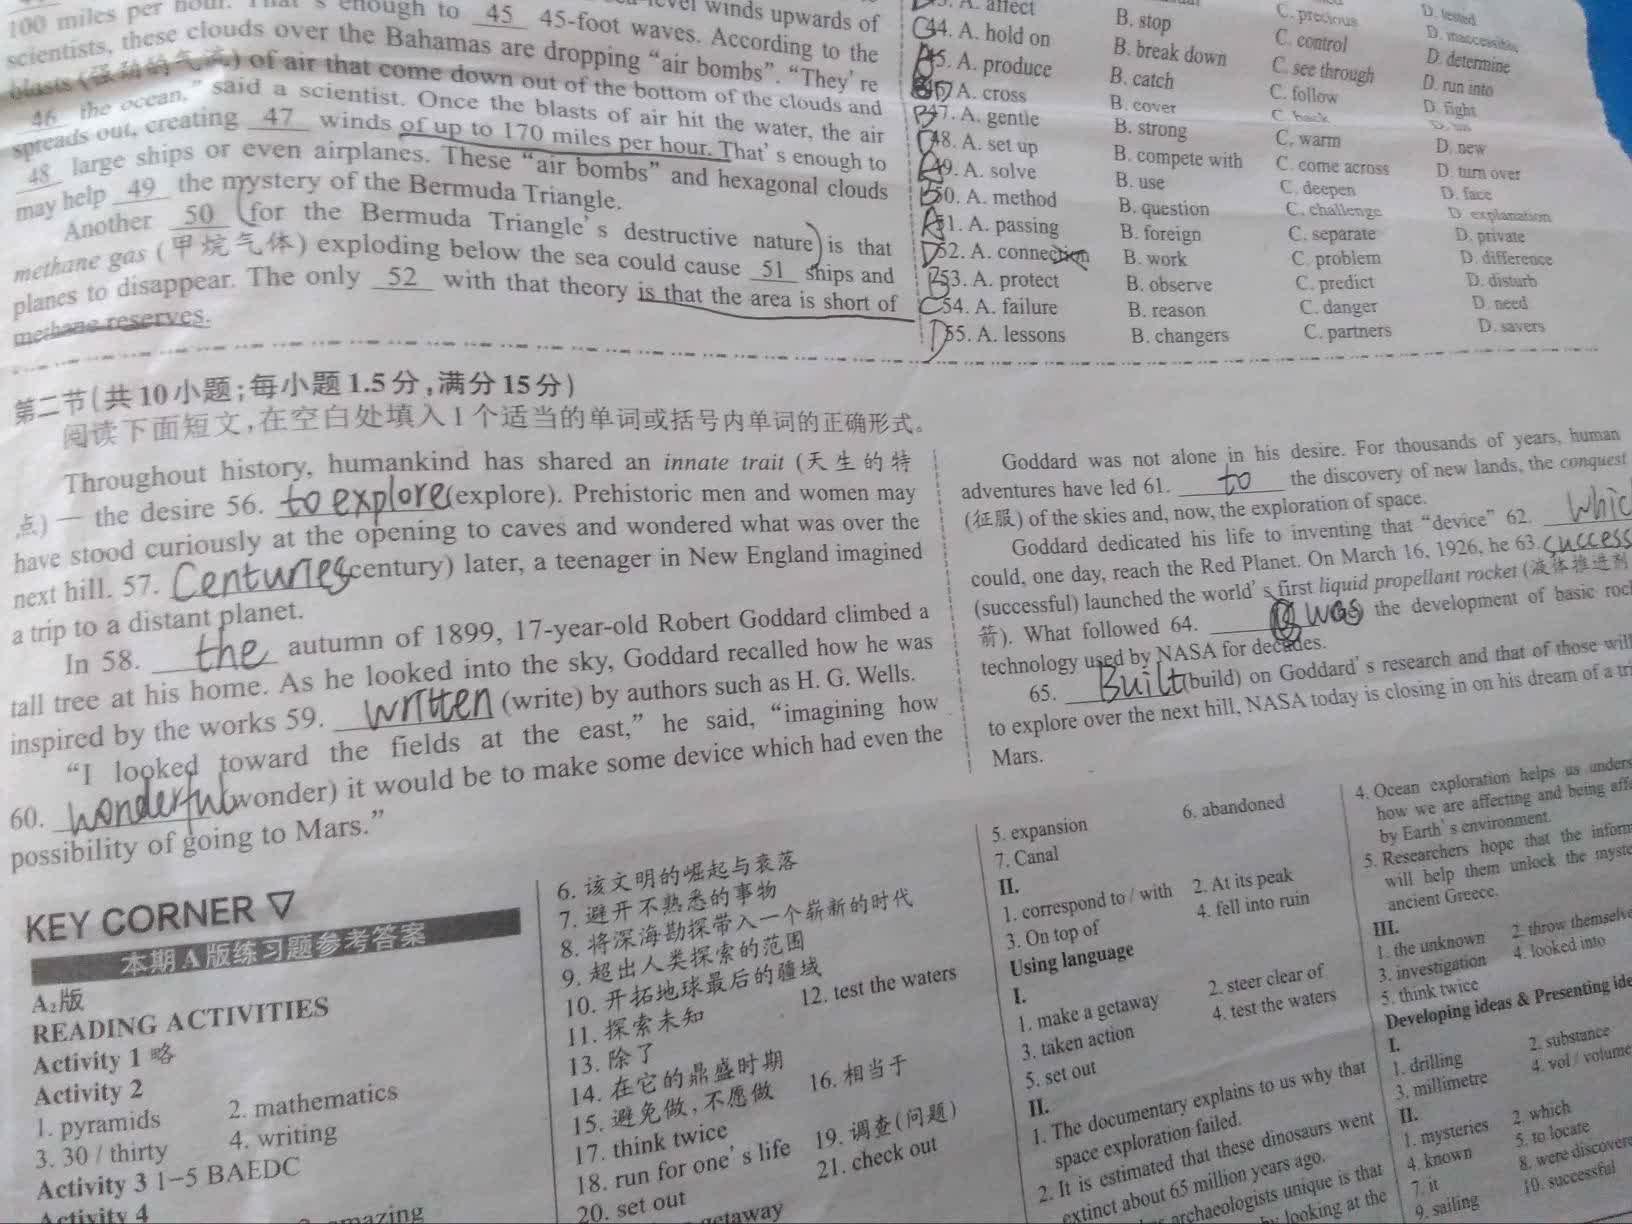 100 miles per hour. That's enough to 45 45-foot waves. According to the
scientists, these clouds over the Bahamas are dropping "air bombs". "They're
blasts (强劲的气流) of air that come down out of the bottom of the clouds and
46 the ocean," said a scientist. Once the blasts of air hit the water, the air
spreads out, creating 47 winds of up to 170 miles per hour. That's enough to
48 large ships or even airplanes. These "air bombs" and hexagonal clouds
may help 49 the mystery of the Bermuda Triangle.
Another 50 for the Bermuda Triangle's destructive nature is that
methane gas (甲烷气体) exploding below the sea could cause 51 ships and
planes to disappear. The only 52 with that theory is that the area is short of
methane reserves.
A. affect
C44. A. hold on B. stop C. precious D. tested
45. A. produce B. break down C. control D. inaccessible
A. cross B. catch C. see through D. determine
B47. A. gentle B. cover C. follow D. run into
48. A. set up B. strong C. back D. fight
A49. A. solve B. compete with C. warm D. new
B50. A. method B. use C. come across D. turn over
A51. A. passing B. question C. deepen D. face
D52. A. connection B. foreign C. challenge D. explanation
B53. A. protect B. work C. separate D. private
C54. A. failure B. observe C. problem D. difference
D55. A. lessons B. reason C. predict D. disturb
B. changers C. danger D. need
C. partners D. savers
第二节(共10小题;每小题1.5分,满分15分)
阅读下面短文,在空白处填入1个适当的单词或括号内单词的正确形式。
Throughout history, humankind has shared an innate trait (天生的特
点) — the desire 56. to explore (explore). Prehistoric men and women may
have stood curiously at the opening to caves and wondered what was over the
next hill. 57. Centuries (century) later, a teenager in New England imagined
a trip to a distant planet.
In 58. the autumn of 1899, 17-year-old Robert Goddard climbed a
tall tree at his home. As he looked into the sky, Goddard recalled how he was
inspired by the works 59. written (write) by authors such as H. G. Wells.
"I looked toward the fields at the east," he said, "imagining how
60. wonderful (wonder) it would be to make some device which had even the
possibility of going to Mars."
Goddard was not alone in his desire. For thousands of years, human
adventures have led 61. to the discovery of new lands, the conquest
(征服) of the skies and, now, the exploration of space.
Goddard dedicated his life to inventing that "device" 62. whic
could, one day, reach the Red Planet. On March 16, 1926, he 63. success
(successful) launched the world's first liquid propellant rocket (液体推进剂
箭). What followed 64. was the development of basic roc
technology used by NASA for decades.
65. Built (build) on Goddard's research and that of those will
to explore over the next hill, NASA today is closing in on his dream of a tri
Mars.
KEY CORNER
本期A版练习题参考答案
A2版
READING ACTIVITIES
Activity 1 略
Activity 2
1. pyramids 2. mathematics
3. 30 / thirty 4. writing
Activity 3 1-5 BAEDC
Activity 4
amazing
6. 该文明的崛起与衰落
7. 避开不熟悉的事物
8. 将深海勘探带入一个崭新的时代
9. 超出人类探索的范围
10. 开拓地球最后的疆域
11. 探索未知 12. test the waters
13. 除了
14. 在它的鼎盛时期
15. 避免做,不愿做 16. 相当于
17. think twice
18. run for one's life 19. 调查(问题)
20. set out 21. check out
getaway
5. expansion 6. abandoned
7. Canal
II.
1. correspond to / with 2. At its peak
3. On top of 4. fell into ruin
Using language
I.
1. make a getaway 2. steer clear of
3. taken action 4. test the waters
5. set out
II.
1. The documentary explains to us why that
space exploration failed.
2. It is estimated that these dinosaurs went
extinct about 65 million years ago.
archaeologists unique is that
looking at the
4. Ocean exploration helps us unders
how we are affecting and being affe
by Earth's environment.
5. Researchers hope that the inform
will help them unlock the myste
ancient Greece.
III.
1. the unknown 2. throw themselve
3. investigation 4. looked into
5. think twice
Developing ideas & Presenting ide
I.
1. drilling 2. substance
3. millimetre 4. vol / volume
II.
1. mysteries 2. which
4. known 5. to locate
7. it 8. were discovere
9. sailing 10. successful